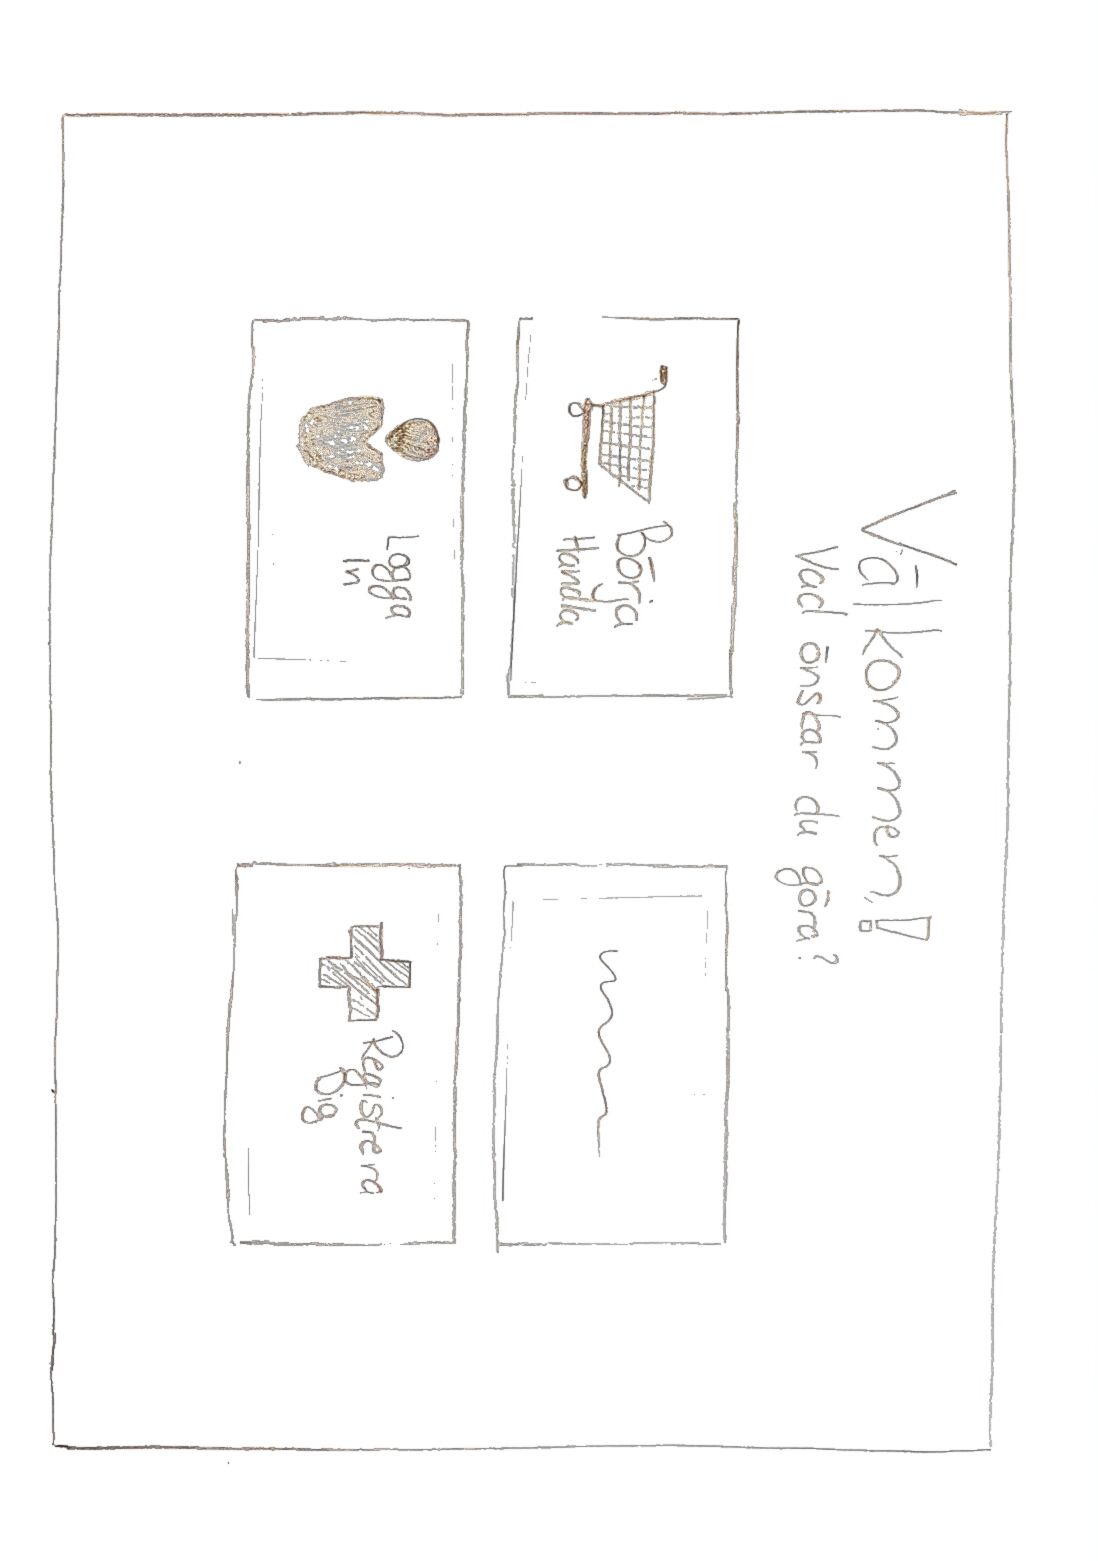 Välkommen!
Vad önskar du göra?
Börja
Handla
Logga
In
Registrera
Dig